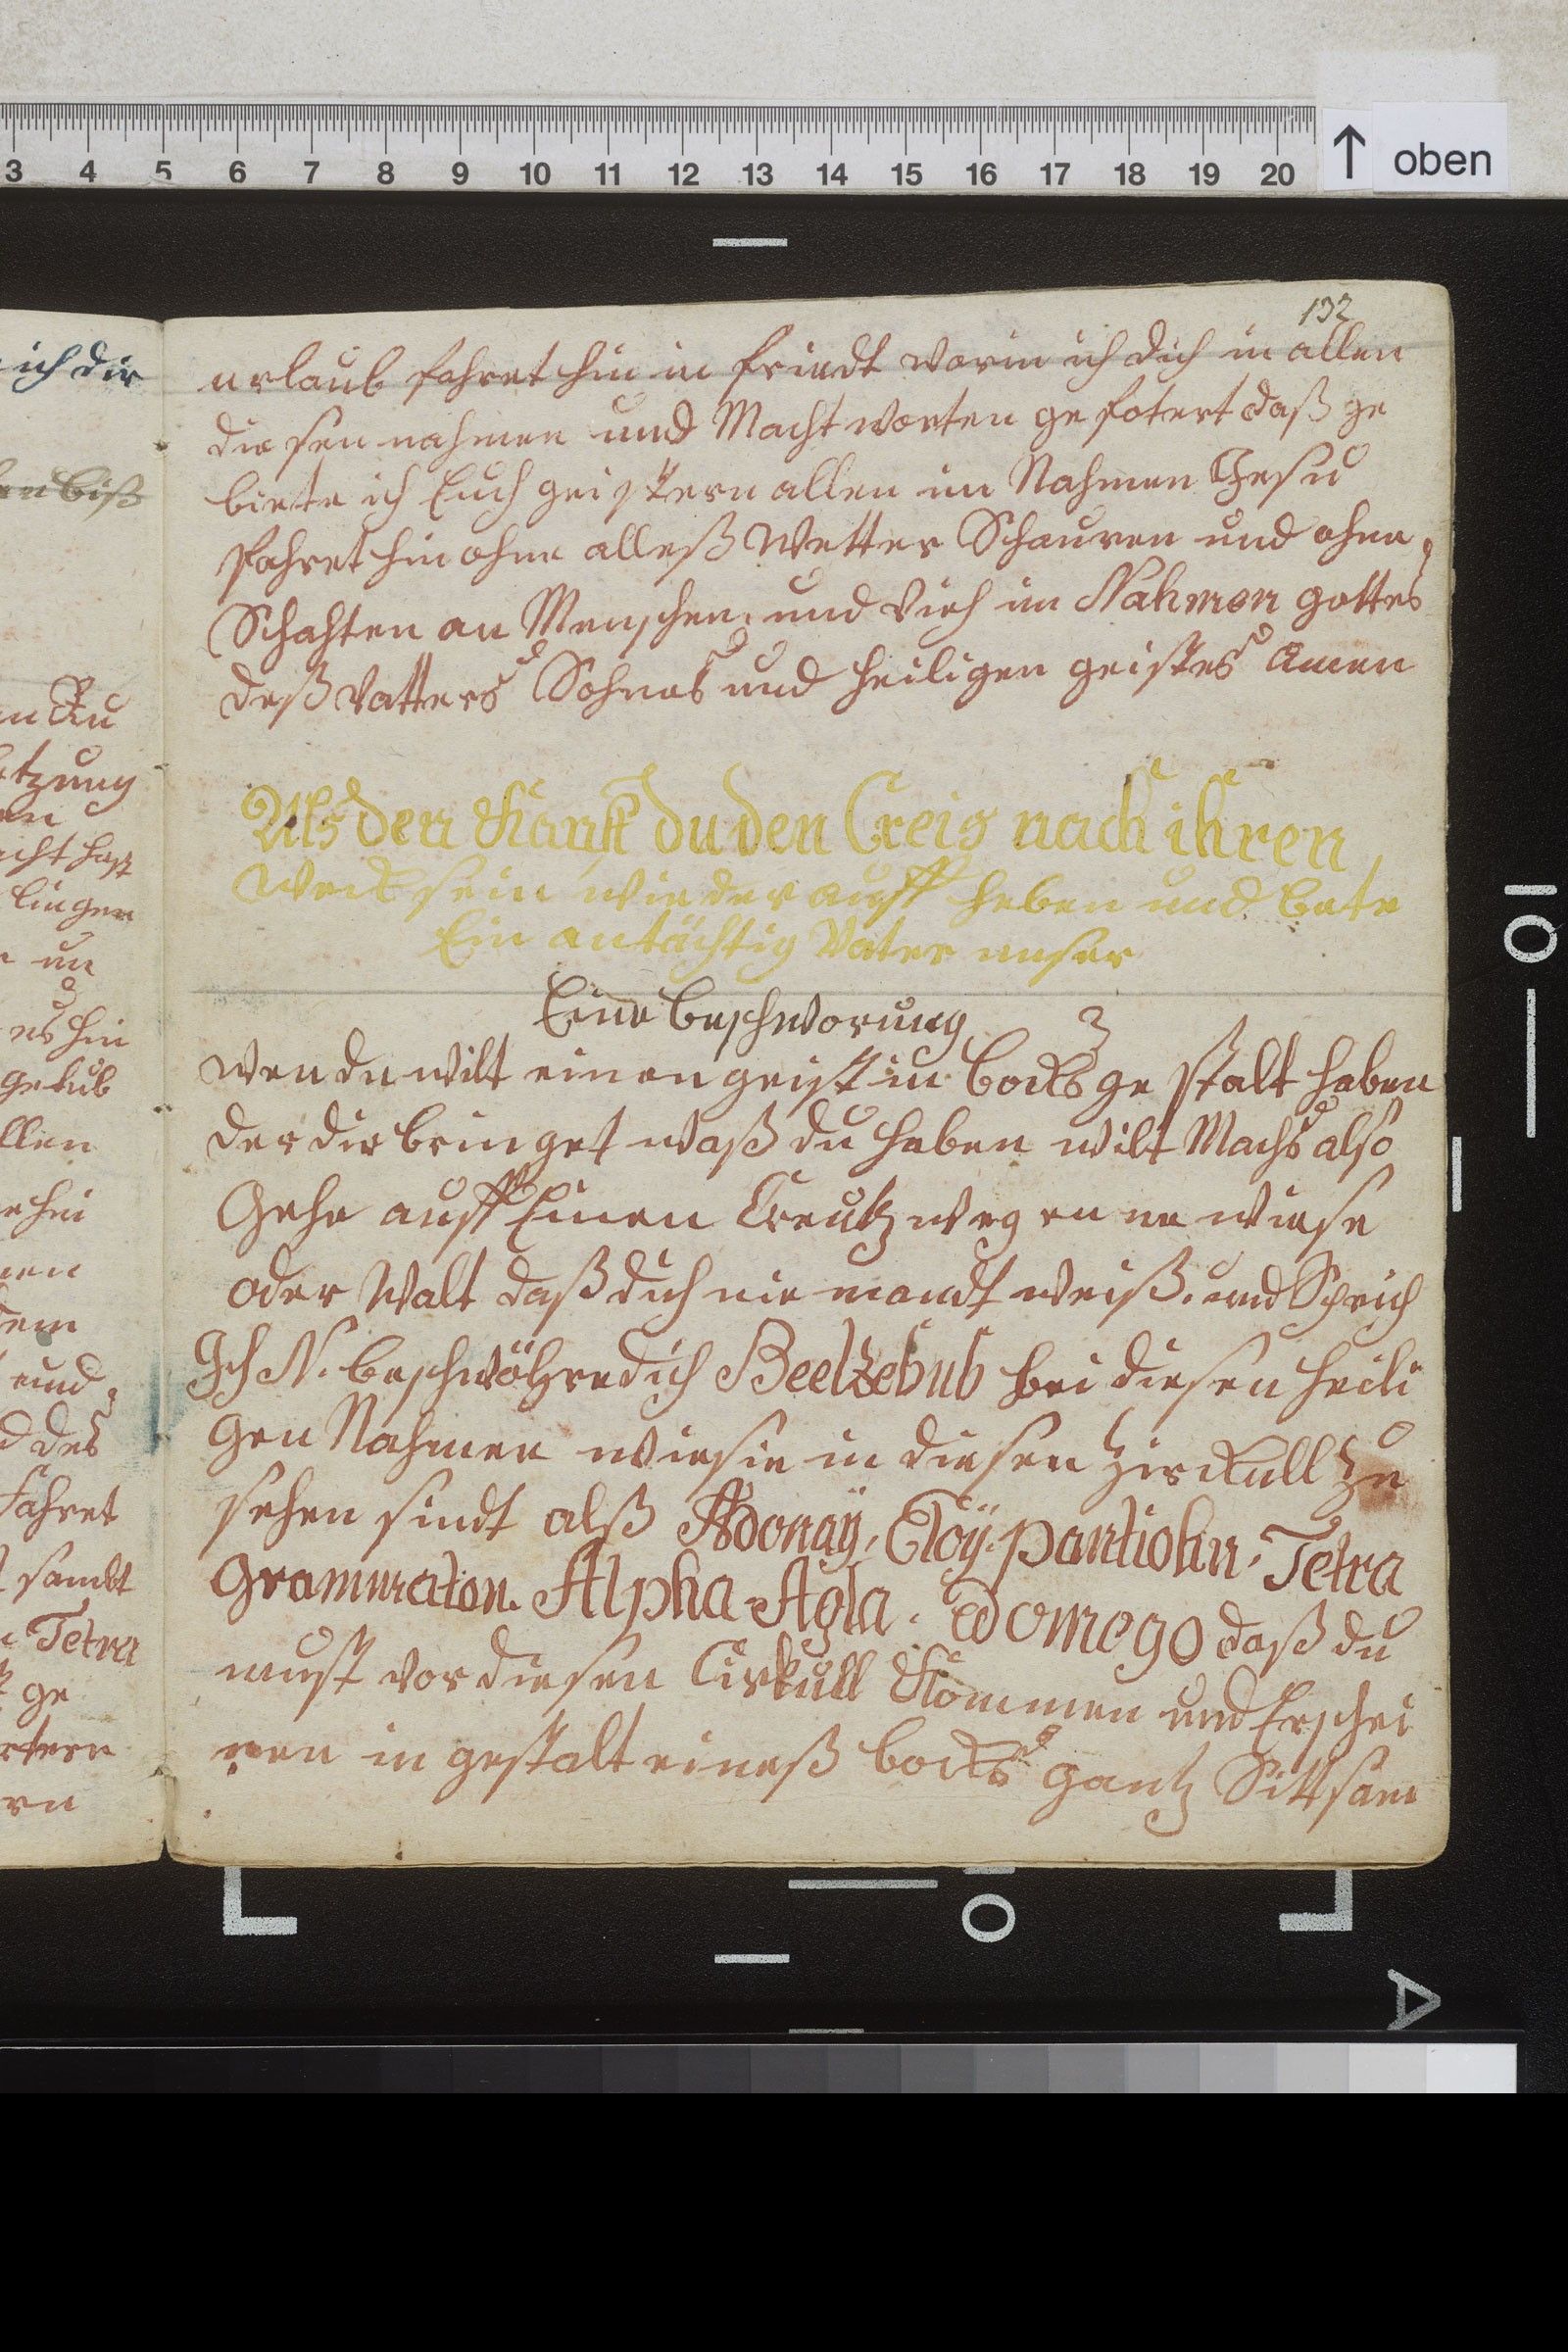 3 4 5 6 7 8 9 10 11 12 13 14 15 16 17 18 19 20
↑ oben
132
erlaub fahret hin in friedt worin ich dich in allen
die sen nahmen und Macht worten ge fotert daß ge
biete ich Euch geistern allen im Nahmen Jesu
fahret hin ohne alleß Wetter Schauren und ohne
Schahten an Menschen und Vieh im Nahmen gottes
deß Vatters Sohnes und heiligen geistes Amen
Als den kanst du den Creis nach ihren
sein wieder auff heben und bete
Ein antächtig Vater unser
Eine beschworung 3
wen du wilt einen geist in bocks ge stalt haben
der dir bringet waß du haben wilt Machs also
Gehe auff Einen Creutz weg en ne wiese
oder Walt daß dich nie mandt weiß. und Sprich
Ich N. beschwöhre dich Beelzebub bei diesen heili
gen Nahmen wie sie in diesen Zirckull zu
sehen sindt alß Adonaÿ, Eloÿ. pantiohn. Tetra
Grammaton. Alpha Agla. ed omego daß du
must vor diesen Cirkull kommen und Erschei
nen in gestalt eineß bocks gantz Sittsam
ich dir
en biß
tzung
icht hast
lingen
un
es hin
llen
und
d des
fahret
sambt
Tetra
ge
10
A